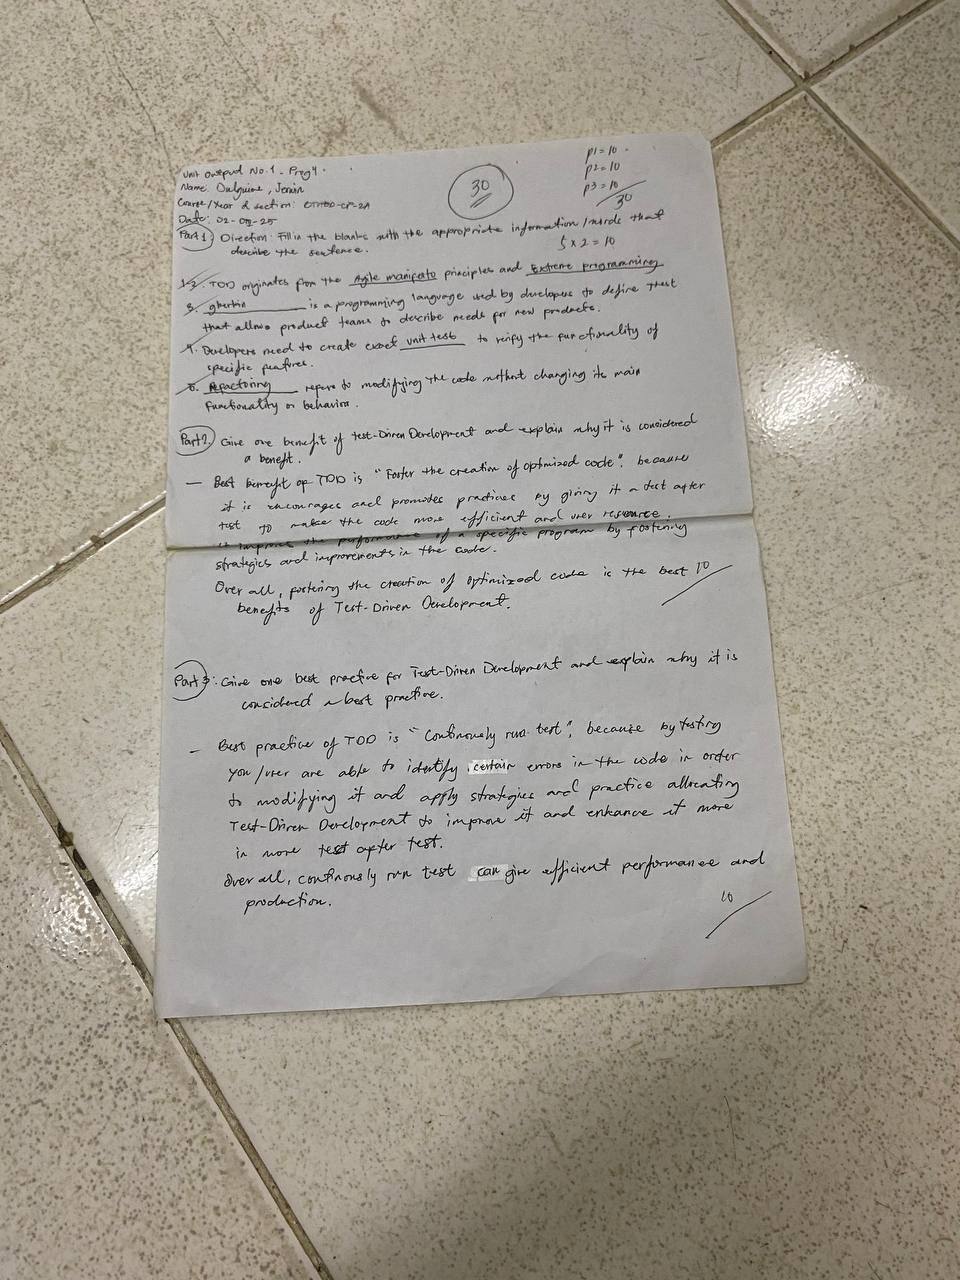 Unit Output No. 1 - Prog 4
p1 = 10
p2 = 10
p3 = 10
30
30
Name: Jenin
Course/Year & section:
Date: 02-
Part 1 Direction: Fill in the blanks with the appropriate information/words that
describe the sentence.
5 x 2 = 10
1-2. TDD originates from the Agile manifato principles and Extreme programming
3. gherkin is a programming language used by developers to define
that allows product teams to describe needs for new products.
4. Developers need to create exact unit test to verify the functionality of
specific
5. Refactoring refers to modifying the code without changing its main
functionality or behavior.
Part 2. Give one benefit of Test-Driven Development and explain why it is considered
a benefit.
- Best benefit of TDD is "Foster the creation of optimized code", because
it is encourages and promotes practices by giving it a test after
test to make the code more efficient and user
it improve the performance of a specific program by fostering
strategies and improvements in the code.
Over all, fostering the creation of optimized code is the best 10
benefits of Test-Driven Development.
Part 3: Give one best practice for Test-Driven Development and explain why it is
considered a best practice.
- Best practice of TDD is "Continously run test", because by testing
you/user are able to identify certain errors in the code in order
to modifying it and apply strategies and practice allocating
Test-Driven Development to improve it and enhance it more
in more test after test.
Over all, continously run test can give efficient performance and
production.
10